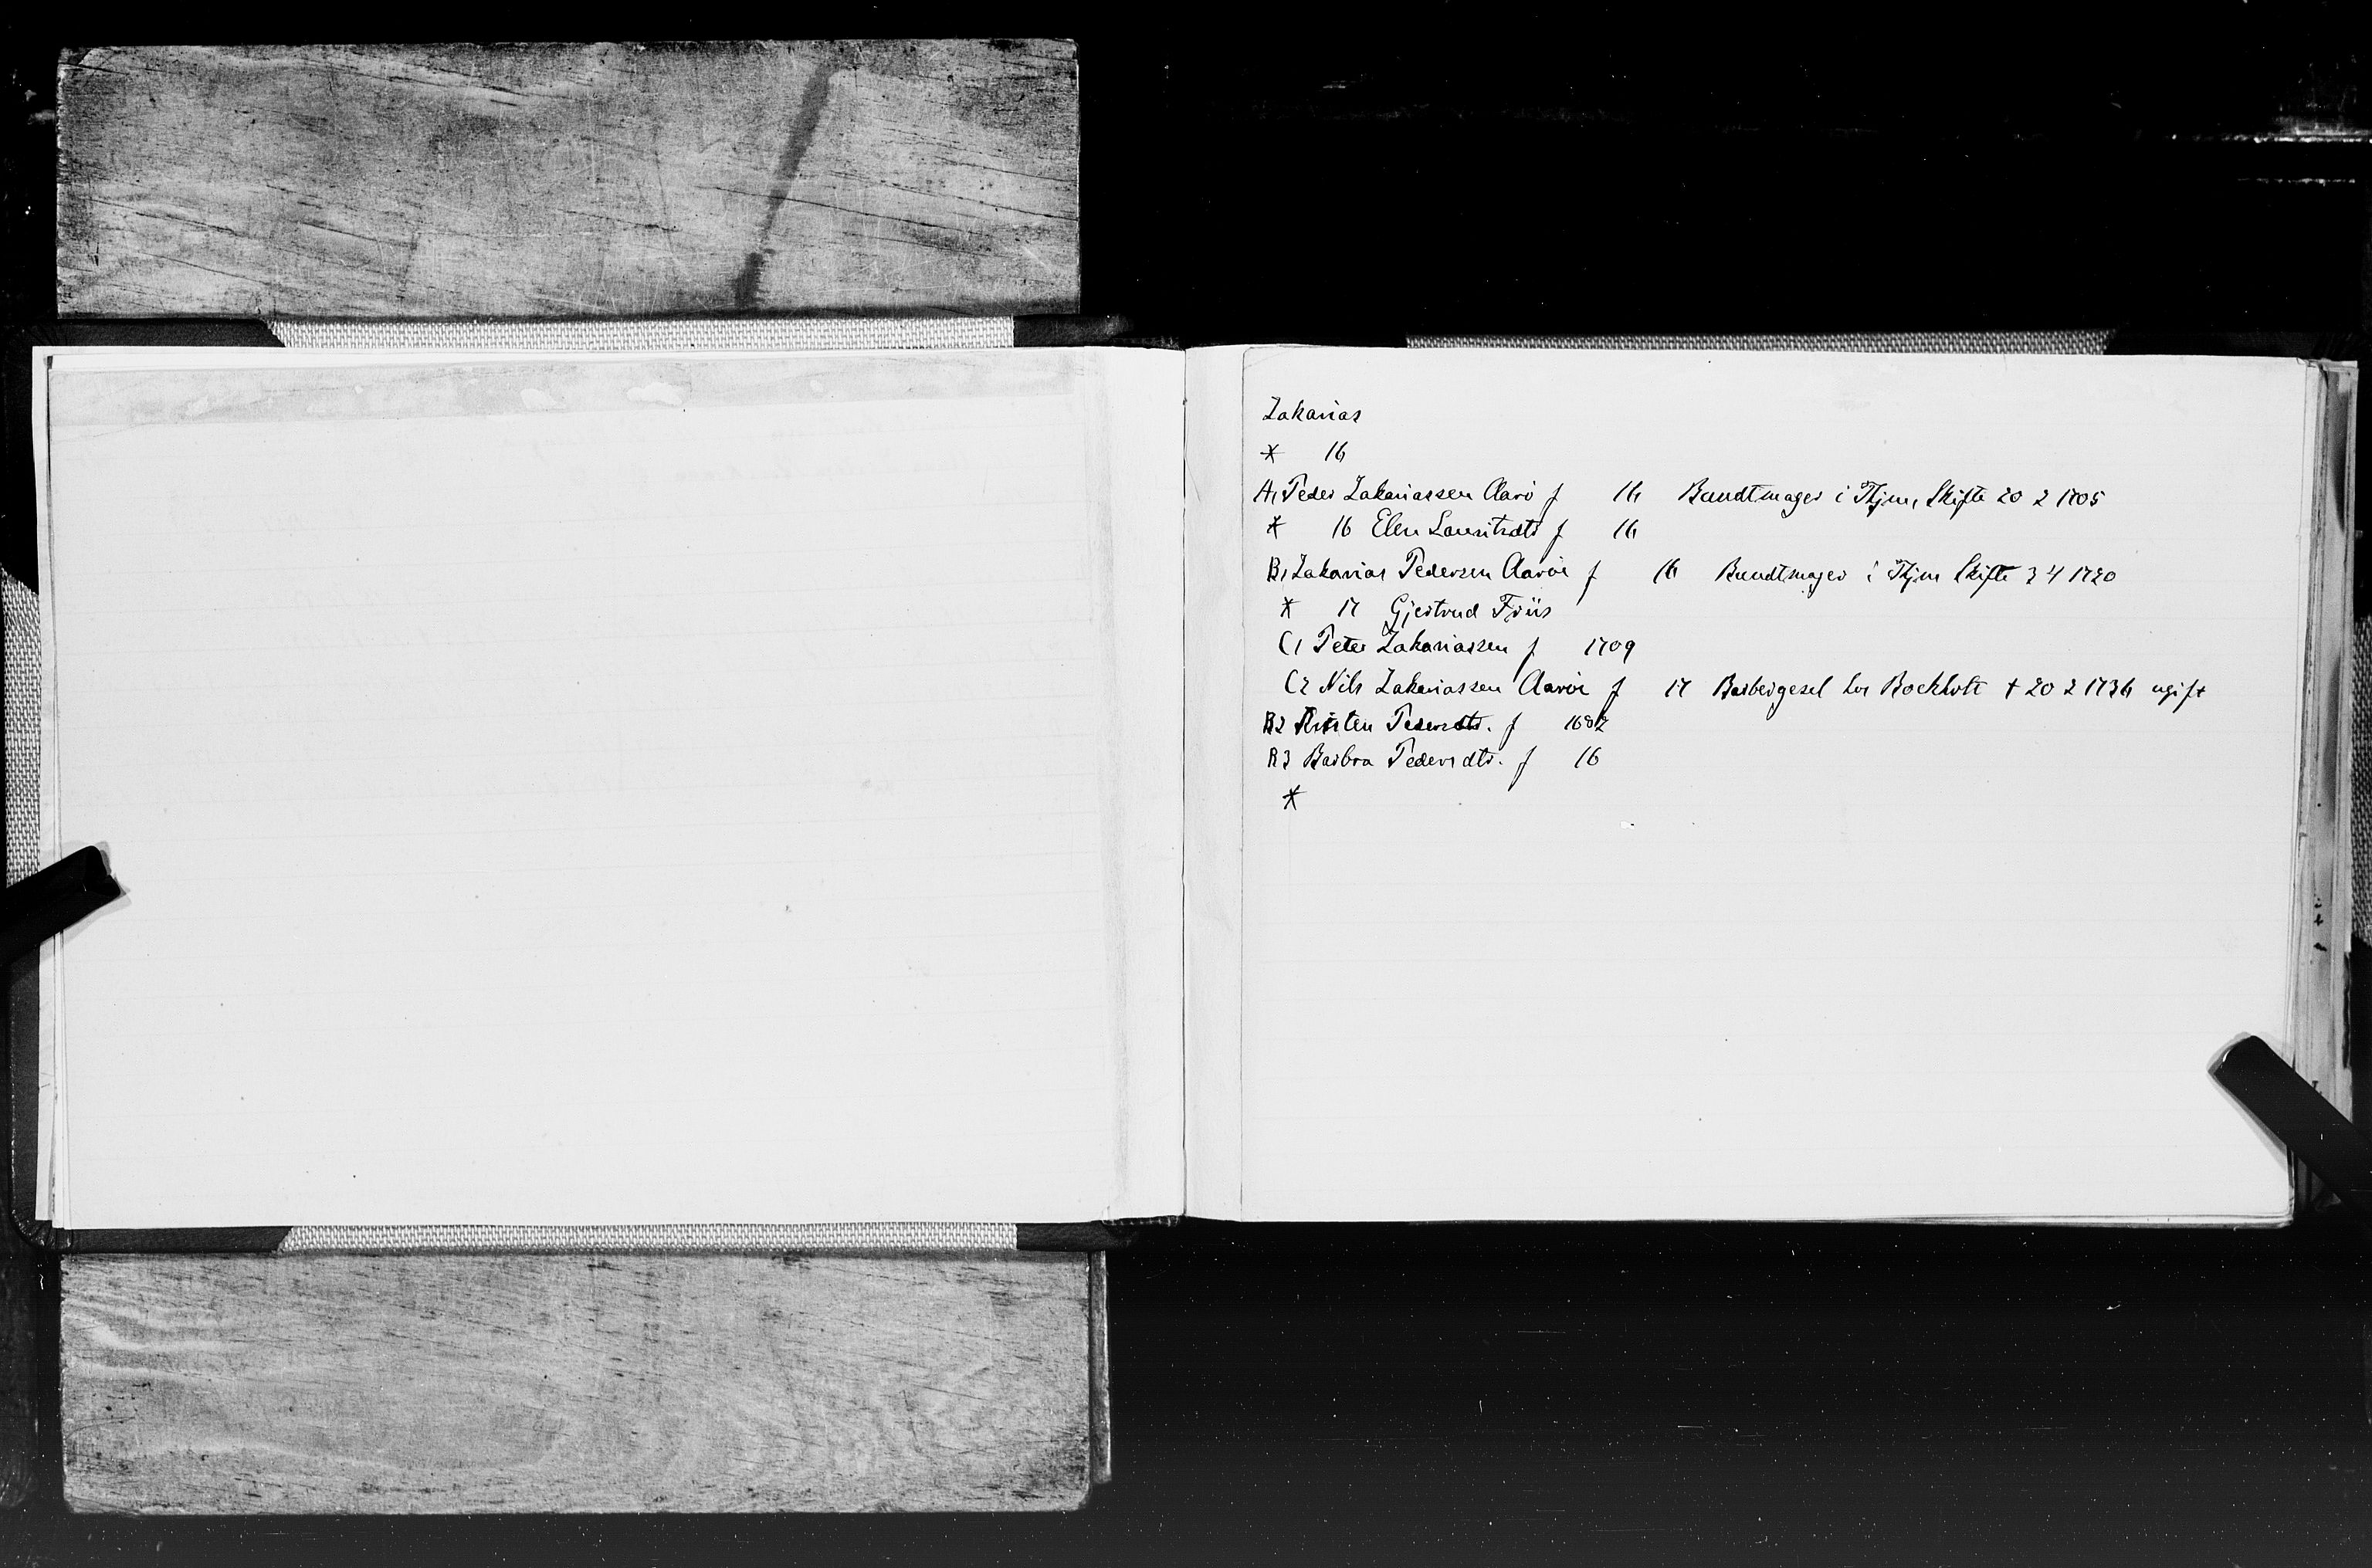 Zakarias
* 16
A1 Peder Zakariassen Aarö f 16 Bundtmager i Thjm, Skifte 20 2 1705
* 16 Elen Lauritzdtr f 16
B1 Zakarias Pedersen Aaröe f 16 Bundtmager i Thjm Skifte 3 4 1720
* 17 Gjertrud Friis
C1 Peter Zakariassen f 1709
C2 Nils Zakariassen Aaröe f 17 Barbergesel hos Bockholt † 20 2 1736 ugift
B2 Kirsten Pedersdtr. f 1682
B3 Barbra Pedersdtr. f 16
*